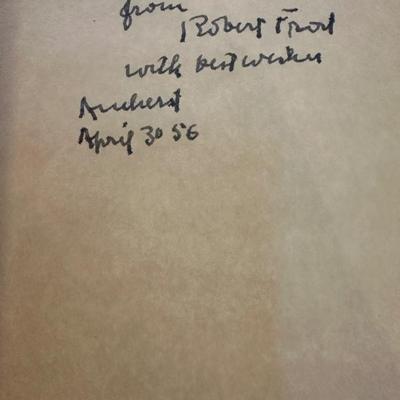 from
Robert Frost
with best wishes
Amherst
April 30 56